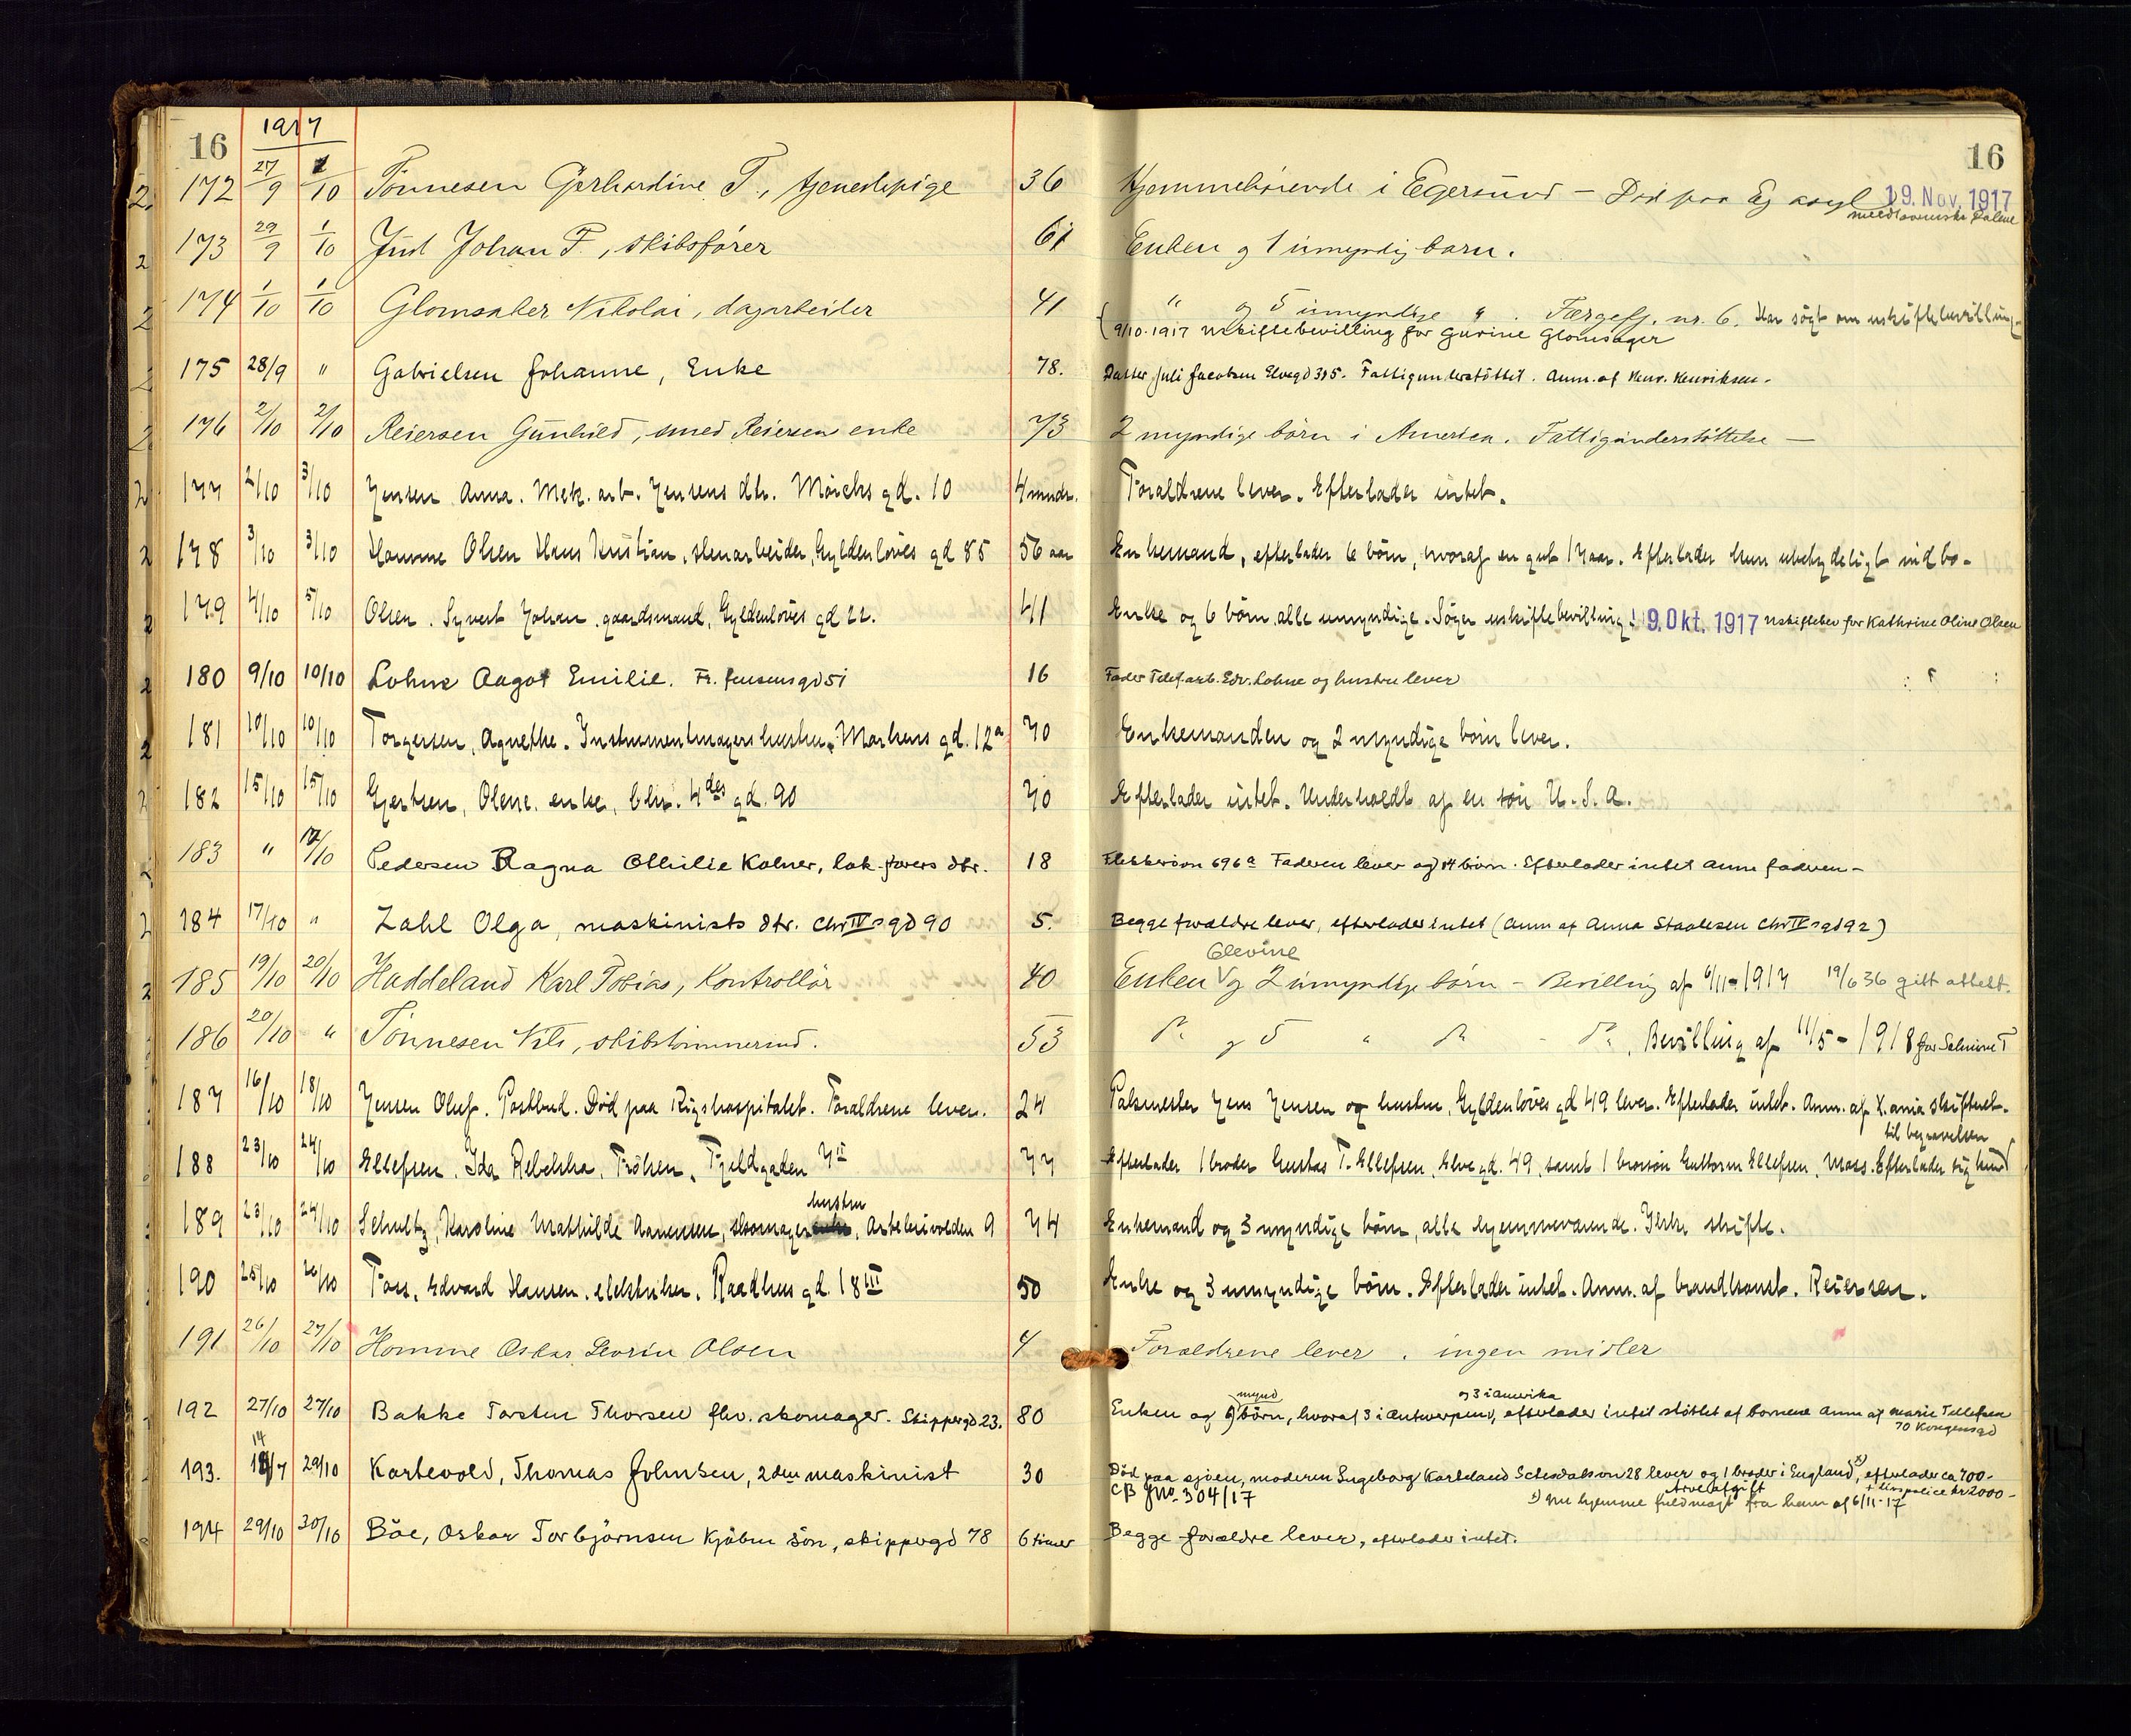 16 1917 16
172 27/9 1/10 Tönnesen Gerhardine T., tjenestepige 36 Hjemmehörende i Egersund – Död paa Eg asyl 19. Nov. 1917
meddt svenske Dalene
173 29/9 1/10 Juul Johan F., skibsförer 61 Enken og 1 umyndig barn.
174 1/10 1/10 Glomsaker Nikolai, dagarbeider 41 " og 5 umyndige ". Færgefj. nr. 6. Har sögt om uskiftebevilling
(9/10-1917 uskiftebevilling for Gurine Glomsager
175 28/9 " Gabrielsen Johanne, Enke 78. Datter Juli Jacobsen Elvegd 325. Fattigunderstöttet. Anm. af Henr. Henriksen.
176 2/10 2/10 Reiersen Gunhild, smed Reiersen enke 73 2 myndige börn i Amerika. Fattigunderstöttelse —
177 2/10 3/10 Jensen Anna. Mek. arb. Jensens dtr. Mörchs gd. 10 4 mndr. Forældrene lever. Efterlader intet.
178 3/10 3/10 Homme Olsen Hans Kristian, stenarbeider, Gyldenlöves gd 85 56 aar Enkemand, efterlader 6 börn, hvoraf en gut 17 aar. Efterlader kun ubetydeligt indbo.
179 4/10 5/10 Olsen. Syvert Johan. gaardsmand, Gyldenlöves gd 22. 41 Enke og 6 börn alle umyndige. Söger uskiftebevilling! 9. Okt. 1917 uskiftebev for Kathrine Oline Olsen
180 9/10 10/10 Lohne Aagot Emilie. Fr. Jensens gd 51 16 Fader Telef.arb. Edv. Lohne og hustru lever
181 10/10 10/10 Torgersen, Agnethe. Instrumentmagers hustru, Markens gd. 12a 70 Enkemanden og 2 myndige börn lever.
182 15/10 15/10 Gjertsen, Olene. enke, Chr. 4des gd. 90 70 Efterlader intet. Underholdt af en sön U.S.A.
183 " 17/10 Pedersen Ragna Othilie Kalner, lok.förers dtr. 18 Flekkeröen 696a Faderen lever og 14 börn. Efterlader intet Anm faderen –
184 17/10 " Zahl Olga, maskinists dtr. Chr IVs gd 90 5. Begge forældre lever, efterlader intet (Anm af Anna Staalesen Chr IVs gd 92)
Elevine
185 19/10 20/10 Haddeland Karl Tobias, Kontrollör 40 Enken V og 2 umyndige börn – Bevilling af 6/11-1917 19/6 36 gitt attest.
186 20/10 " Tönnesen Nils, skibstömmermd. 53 Do og 5 " Do – Do. Bevilling af 11/5-1918 for Selmine T
187 16/10 18/10 Jensen Oluf. Postbud. Död paa Rigshospitalet. Forældrene lever. 24 Palsmester Jens Jensen og hustru, Gyldenlöves gd 49 lever. Efterlader intet. Anm. af K.ania skifteret.
til begravelsen
188 23/10 24/10 Ellefsen, Ida Rebekka, Fröken, Fjeldgaden 7II 77 Efterlader 1 broder Gustav T. Ellefsen, Elvegd. 49, samt 1 brorsön Guttorm Ellefsen, Moss. Efterlader sig kun
hustru
189 23/10 24/10 Schultz, Karoline Mathilde Aanensen, skomager enke, Artillerivolden 9 74 Enkemand og 3 myndige börn, alle hjemmeværende. Ikke skifte.
190 25/10 26/10 Foss, Edvard Hansen. elektriker. Raadhus gd. 18III 50 Enke og 3 umyndige börn. Efterlader intet. Anm. af brandkonst. Reiersen.
191 26/10 27/10 Homme Oskar Severin Olsen 4 Forældrene lever. ingen midler
mynd og 3 i Amerika
192 27/10 27/10 Bakke Torsten Thorsen fhv. skomager. Skippergd 23. 80 Enken og 9 börn, hvoraf 3 i Antwerpen, efterlader intet stöttet af börnene Anm af Marie Tellefsen
70 Kongensgd
193. 14/7 29/10 Kartevold, Thomas Johnsen, 2den maskinist 30 Död paa sjöen, moderen Ingeborg Karteland Setesdalsvn 28 lever og 1 broder i England x), efterlader ca 700-
Arveafgift + livspolice kr 2000-
CB Jno. 304/17 x) nu hjemme fuldmagt fra ham af 6/11-17
194 29/10 30/10 Böe, Oskar Torbjörnsen kjöbm sön, skippergd 78 6 timer Begge forældre lever, efterlader intet.